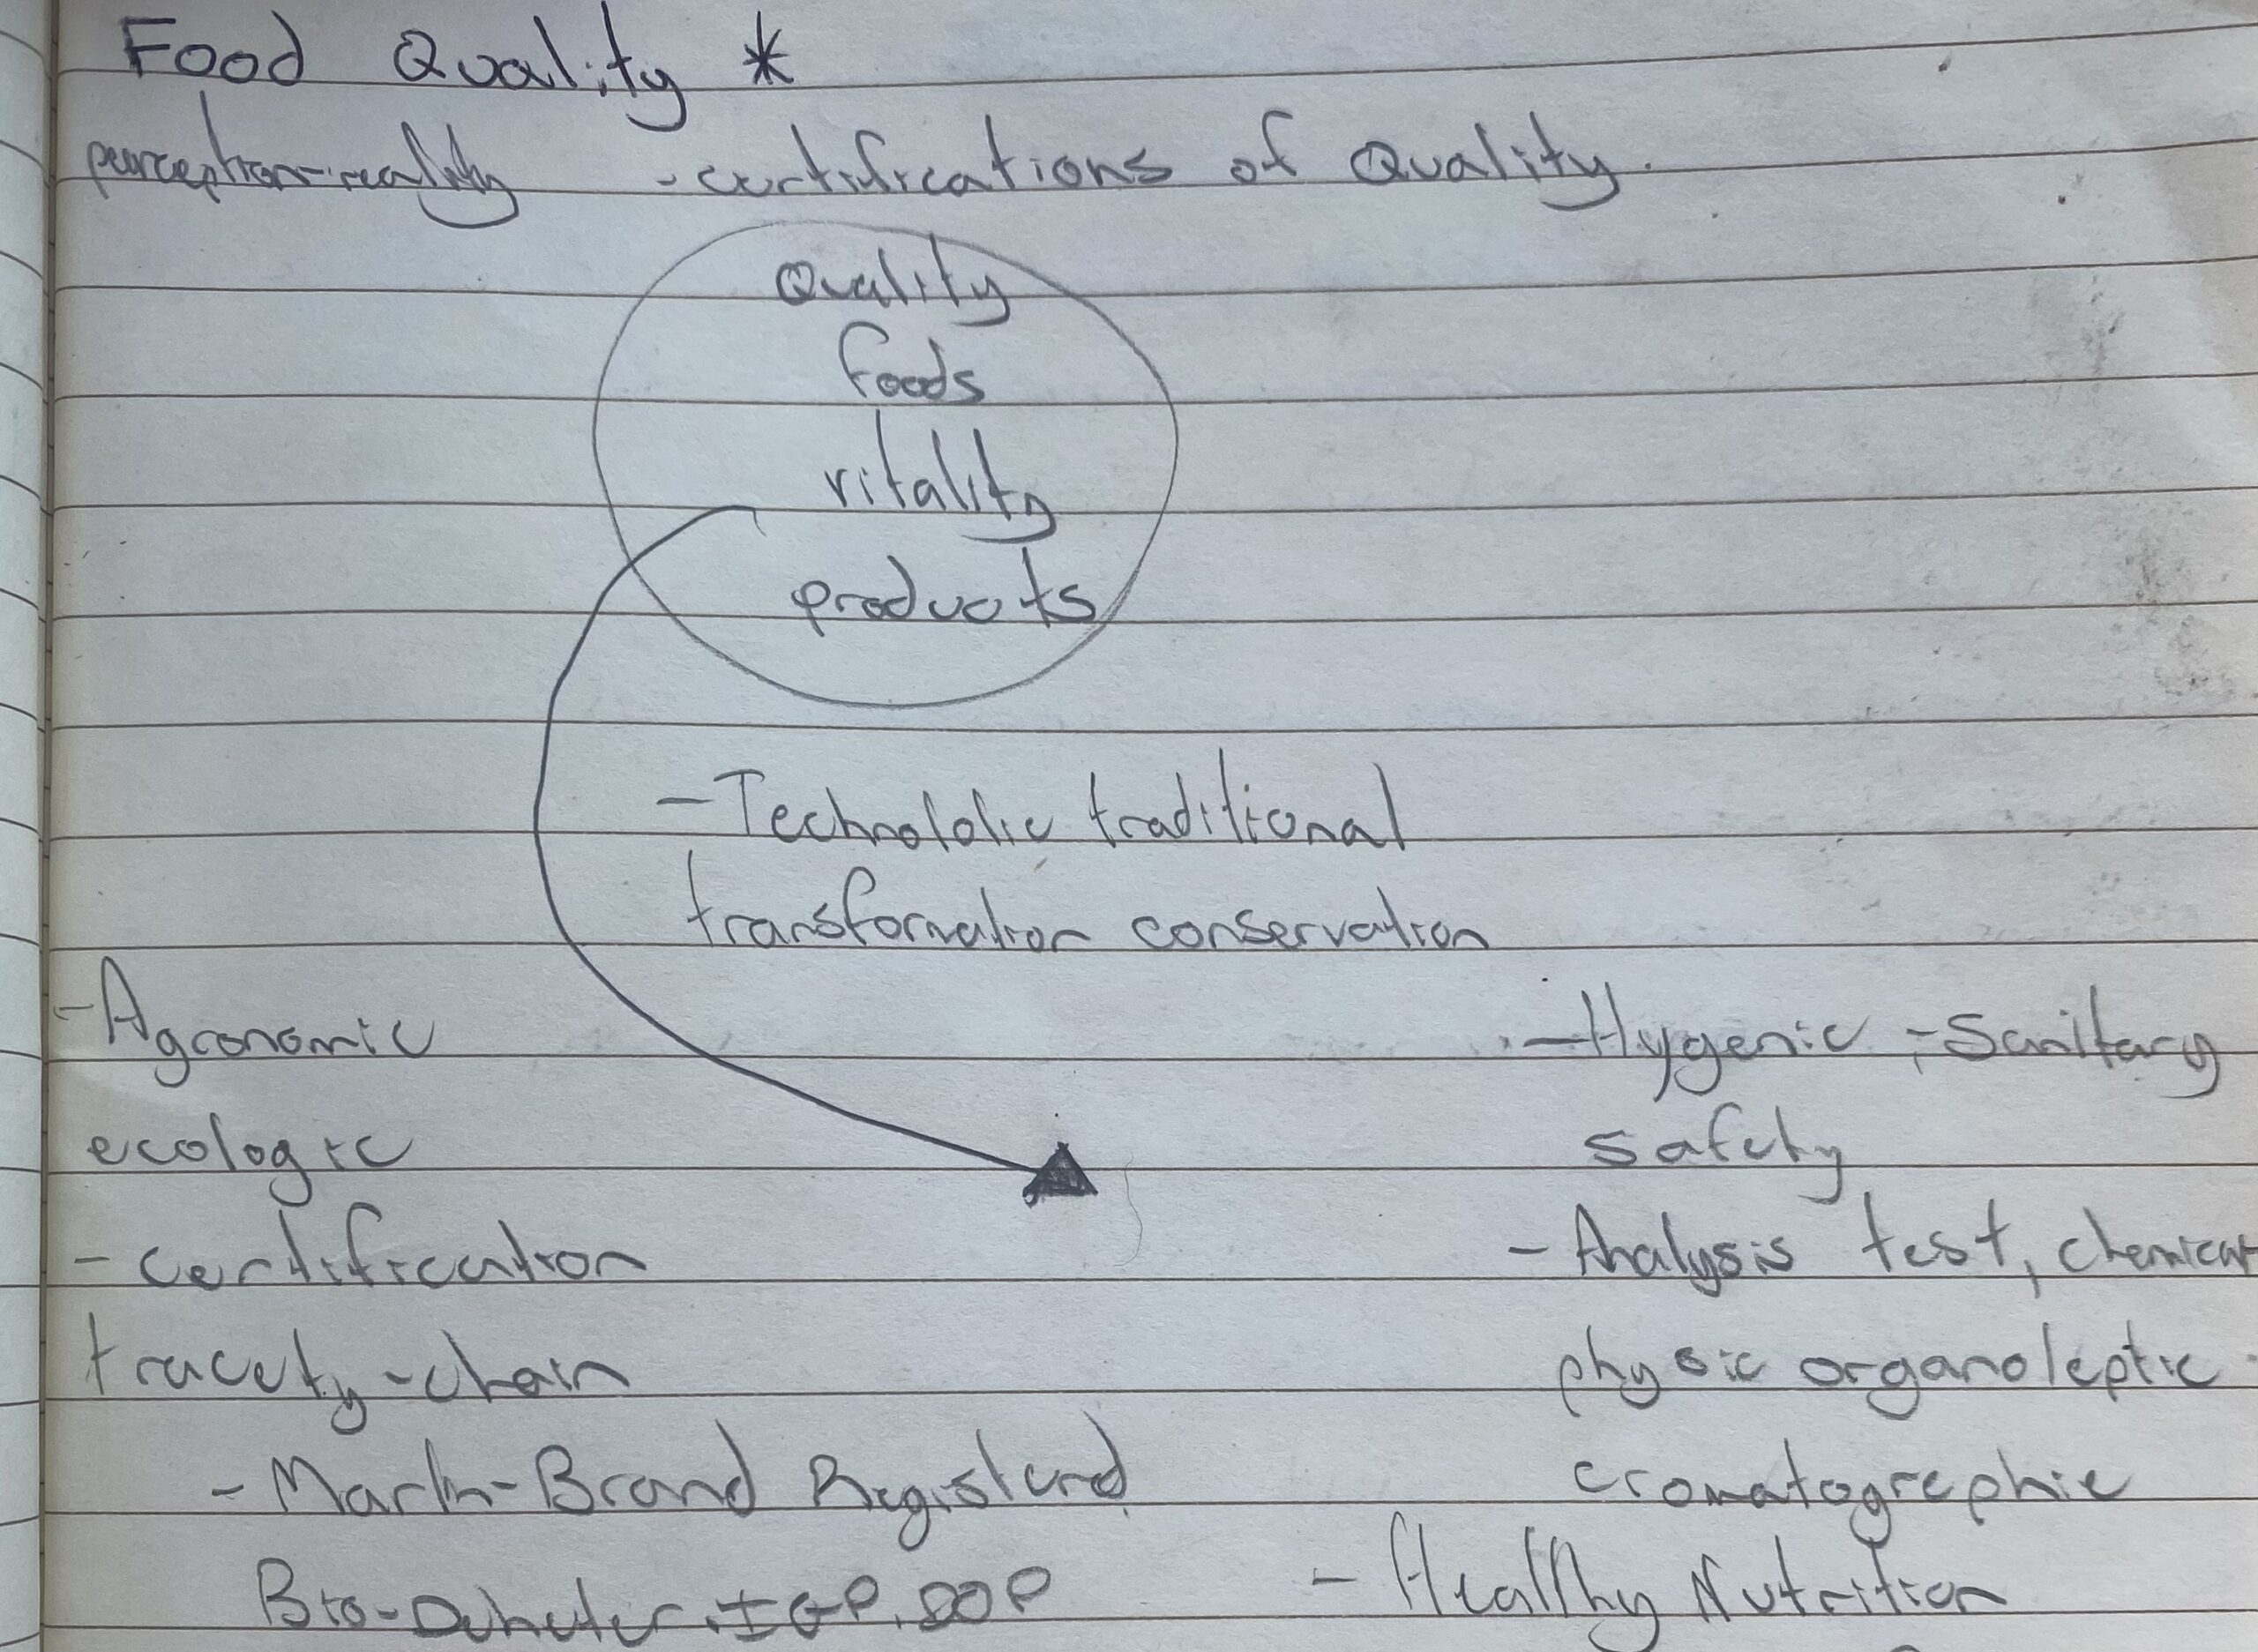 Food Quality *
perception-reality - certifications of Quality.
Quality
foods
vitality
products
- Technololic traditional
transformation conservation
- Agronomic
ecologic
- certification
tracety-chain
- Mark-Brand Registerd
Bio- IGP, DOP
- Hygenic - Sanitary
safety
- Analysis test, chemical
physic organoleptic
cromatographic
- Healthy Nutrition